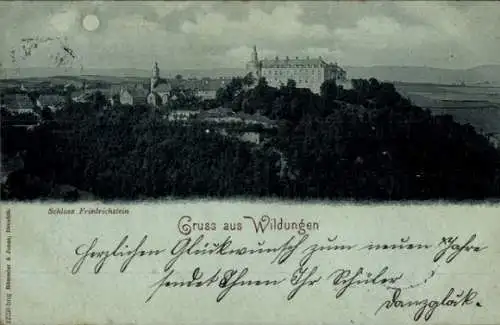 Schloss Friedrichstein
Gruss aus Wildungen
Herzlichen Glückwunsch zum neuen Jahre
sendet Ihnen Ihr Schüler
Römmler & Jonas, Dresden